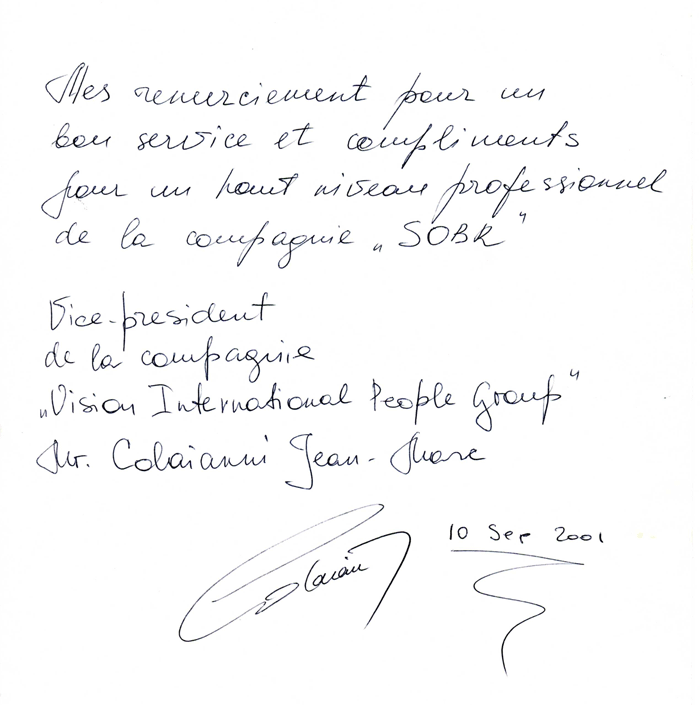 Mes remerciement pour un
bon service et compliments
pour un haut niveau professionnel
de la compagnie „SOBR"
Vice-president
de la compagnie
„Vision International People Group"
Mr. Colaianni Jean-Marc
10 Sep 2001